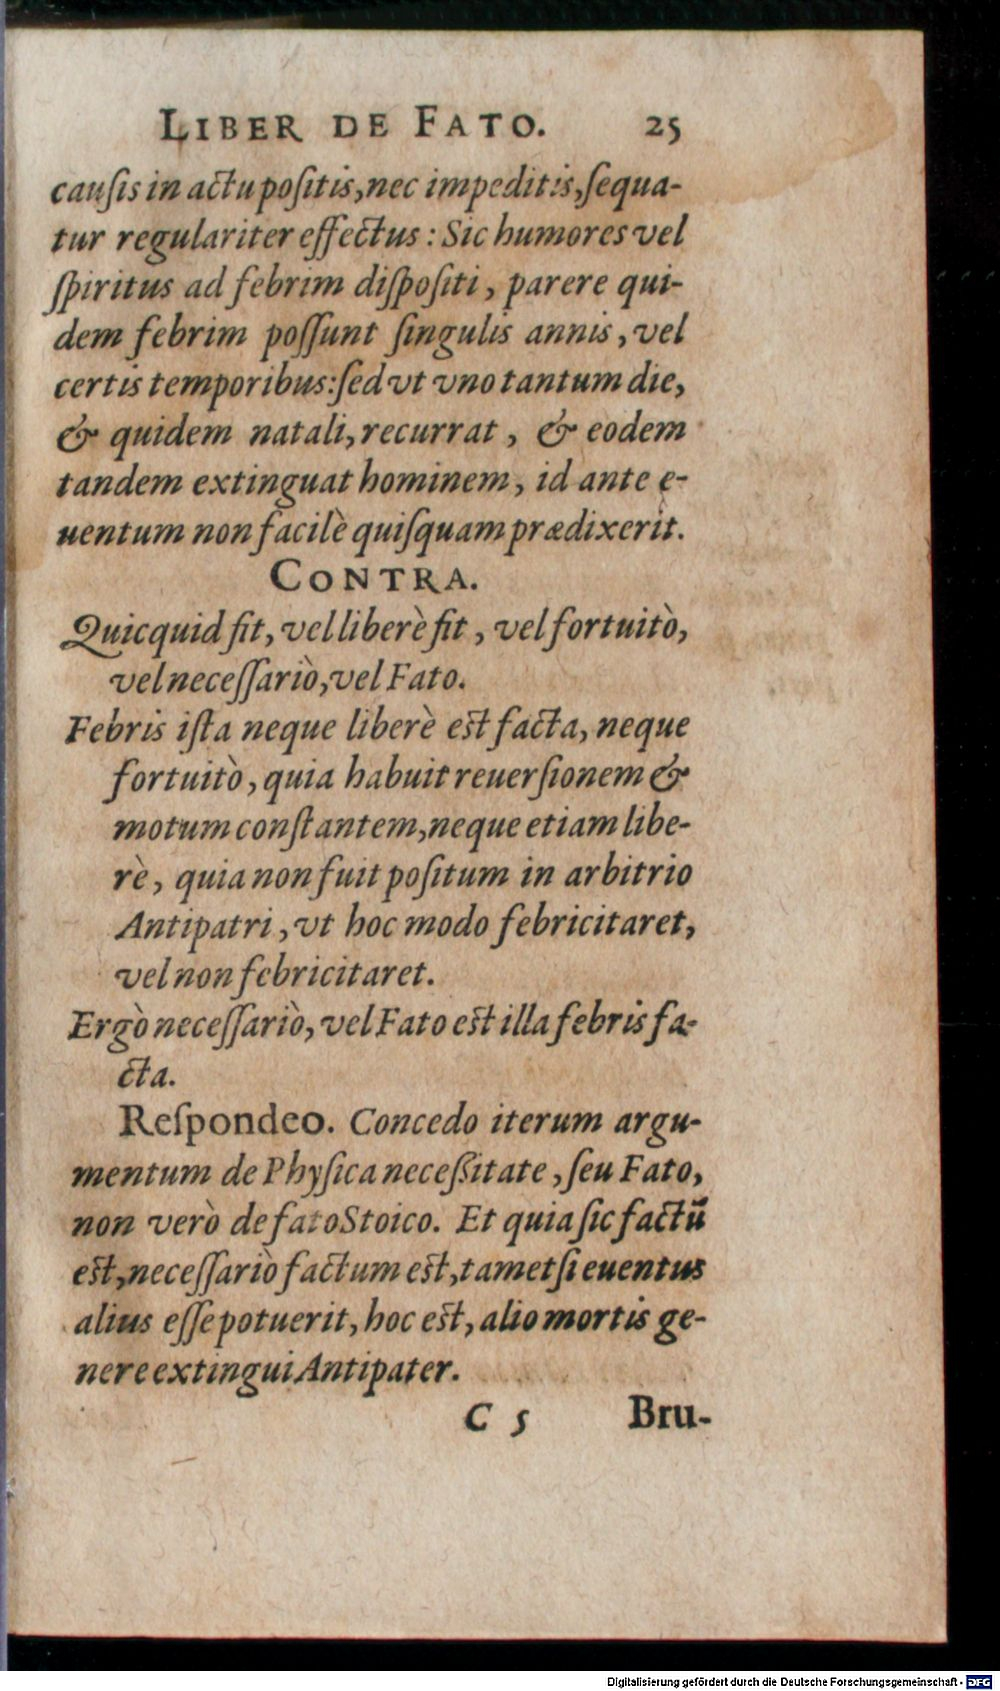 LIBER DE FATO. 25
cauſis in actu poſitis, nec impeditis, ſequa-
tur regulariter effectus : Sic humores vel
ſpiritus ad febrim diſpoſiti, parere qui-
dem febrim poſſunt ſingulis annis, vel
certis temporibus: ſed vt vno tantum die,
& quidem natali, recurrat, & eodem
tandem extinguat hominem, id ante e-
uentum non facilè quiſquam prædixerit.
CONTRA.
Quicquid fit, vel liberè fit, vel fortuitò,
vel neceſſariò, vel Fato.
Febris iſta neque liberè eſt facta, neque
fortuitò, quia habuit reuerſionem &
motum conſtantem, neque etiam libe-
rè, quia non fuit poſitum in arbitrio
Antipatri, vt hoc modo febricitaret,
vel non febricitaret.
Ergò neceſſariò, vel Fato eſt illa febris fa-
cta.
Reſpondeo. Concedo iterum argu-
mentum de Phyſica neceßitate, ſeu Fato,
non verò de fato Stoico. Et quia ſic factū
eſt, neceſſariò factum eſt, tametſi euentus
alius eſſe potuerit, hoc eſt, alio mortis ge-
nere extingui Antipater.
C 5 Bru-
Digitalisierung gefördert durch die Deutsche Forschungsgemeinschaft - DFG